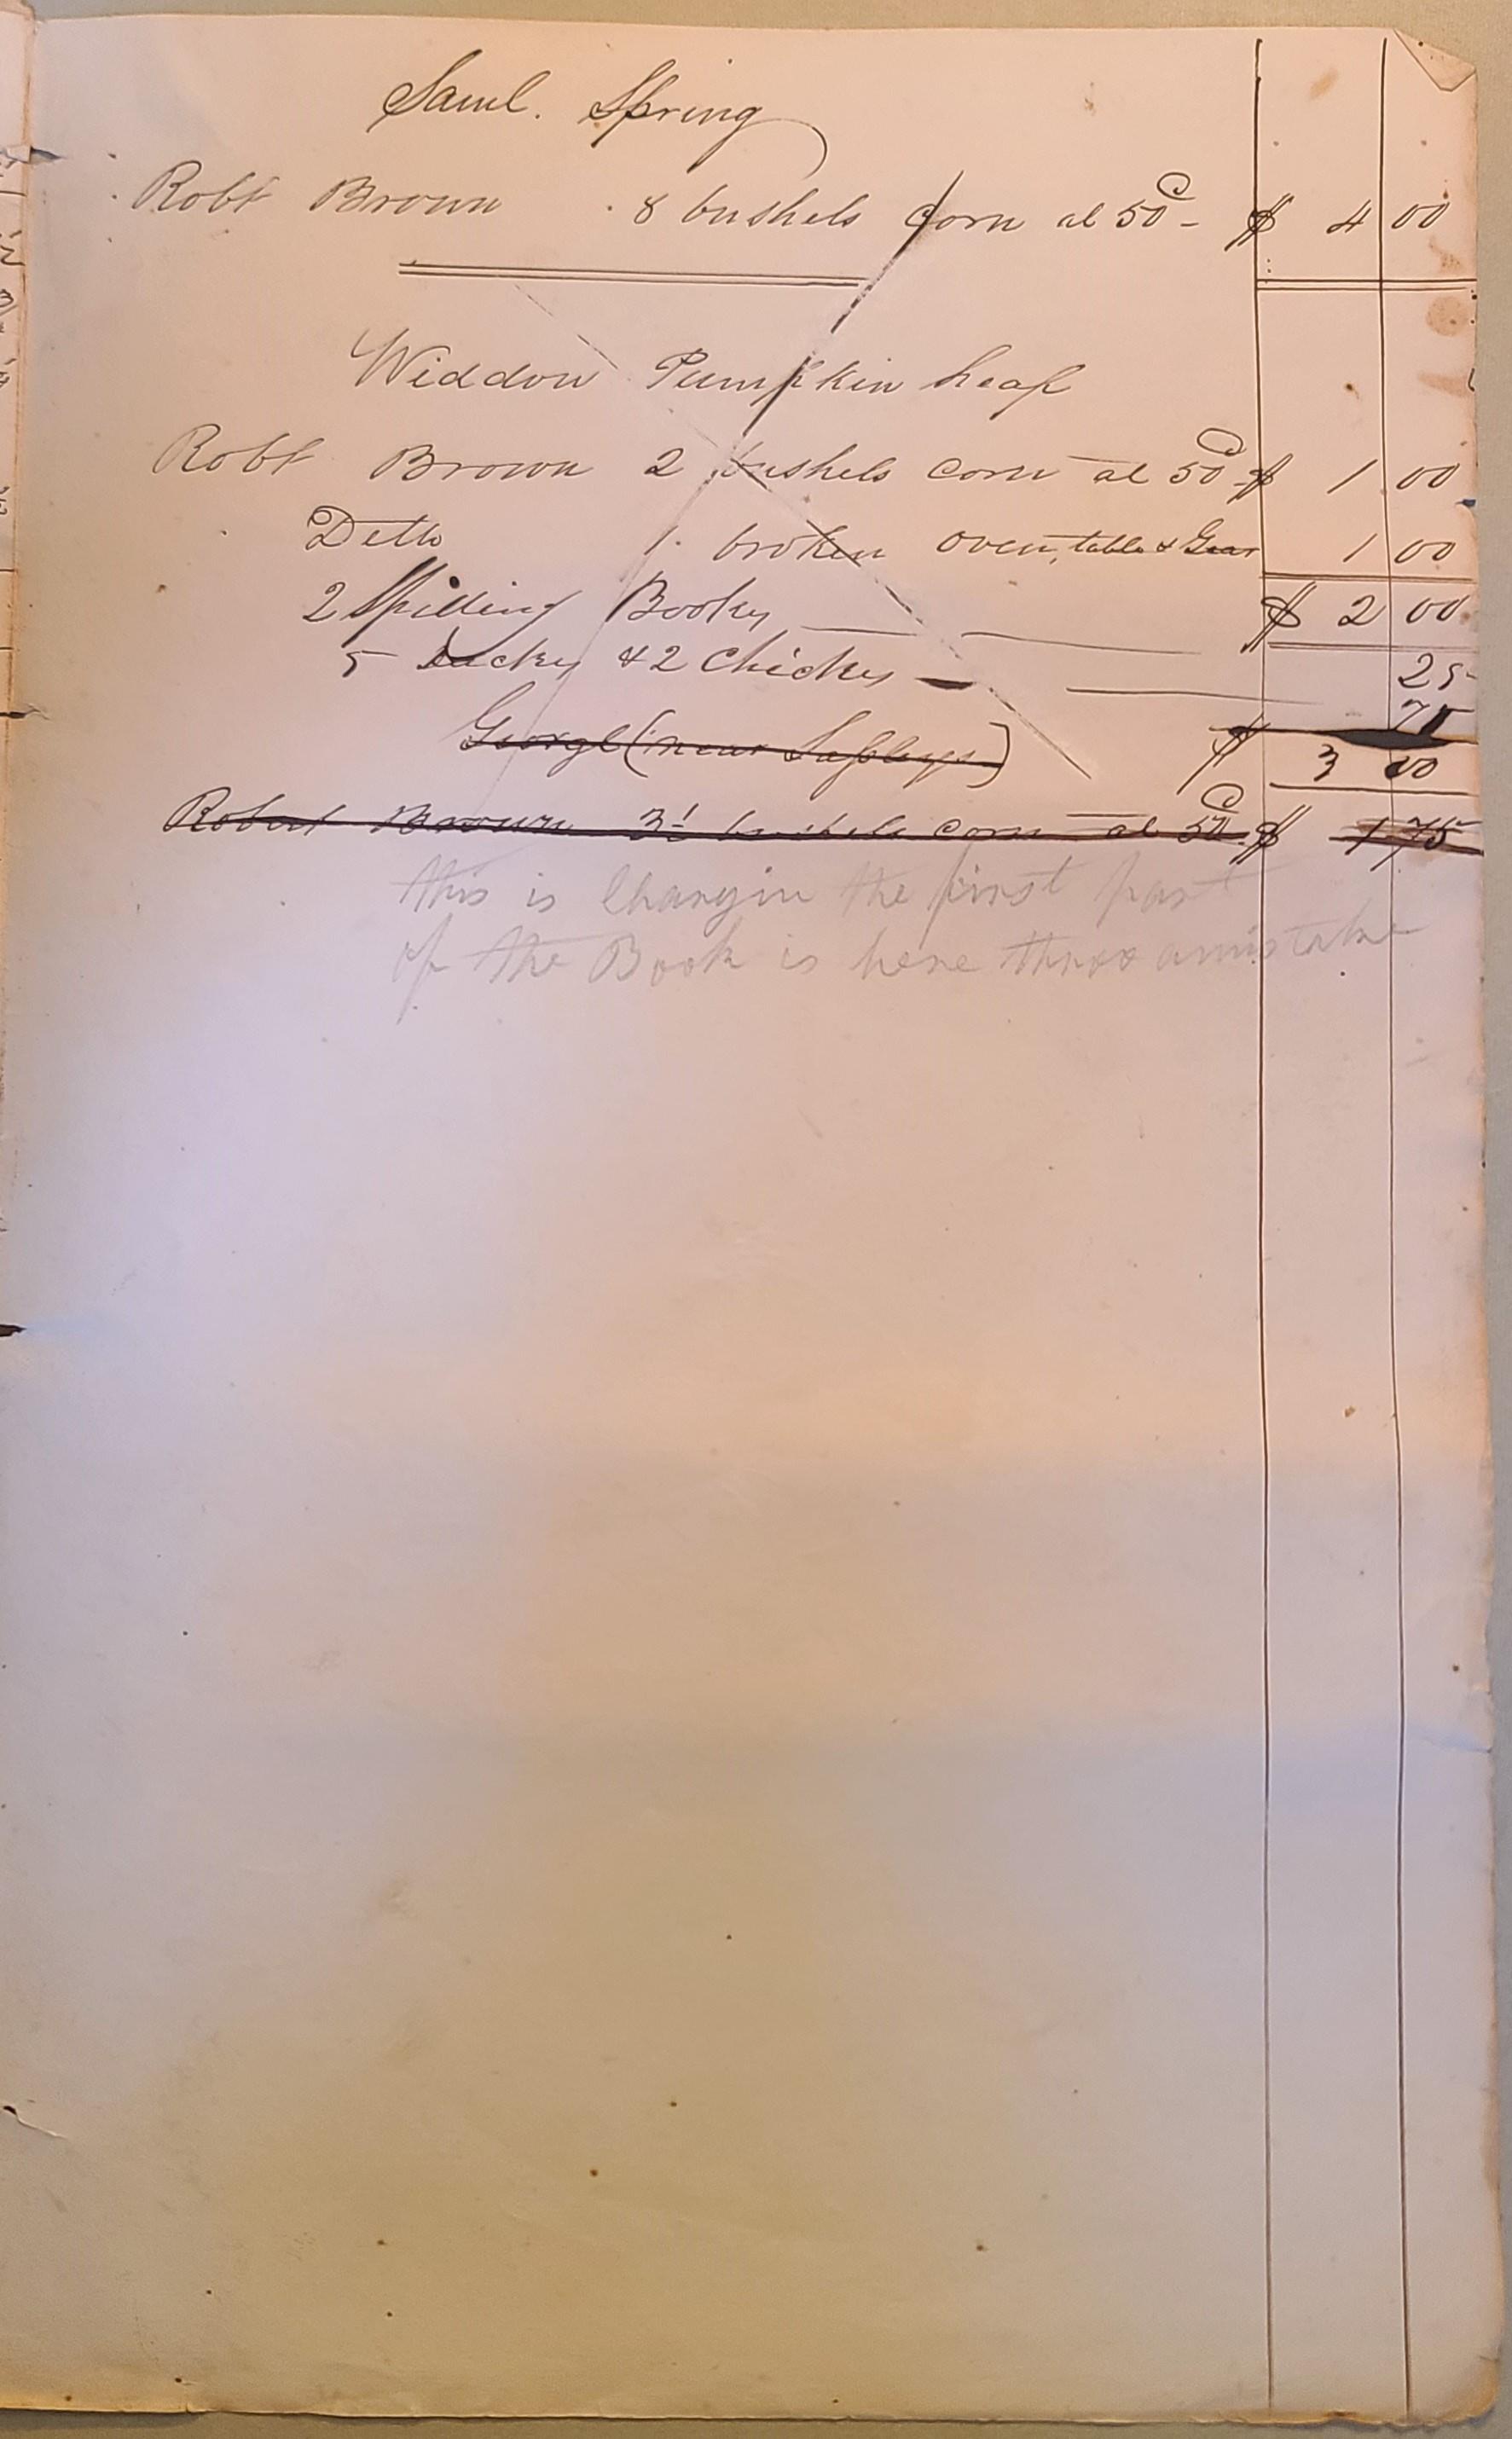 Saml. Spring
Robt Brown 8 bushels Corn at 50c - $ 4 00
Widdow Pumpkin heap
Robt Brown 2 bushels corn at 50c - $ 1 00
Ditto 1 broken oven, table & Gear 1 00
2 Spilling Books $ 2 00
5 Ducks & 2 Chicks 25
75
George (near Lasleys) $ 3 00
Robert Brown 3½ bushels corn at 50c $ 1 75
this is Chargin the first part
of the Book is here throo a mistake